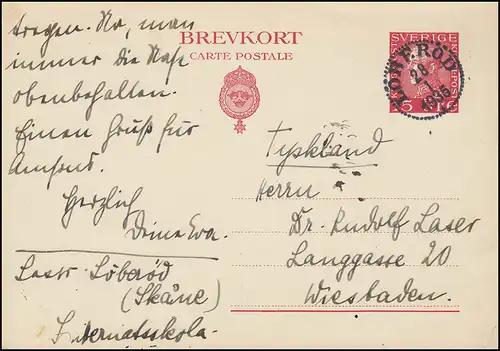 tragen. Na, man
immer die Nase
obenbehalten.
Einen Gruß für
Herzlich
Deine Eva.
Löberöd
(Skåne)
Internatsskola
BREVKORT
CARTE POSTALE
SVERIGE
28
1935
Tyskland
Herrn
Dr. Rudolf Laser
Langgasse 20
Wiesbaden.